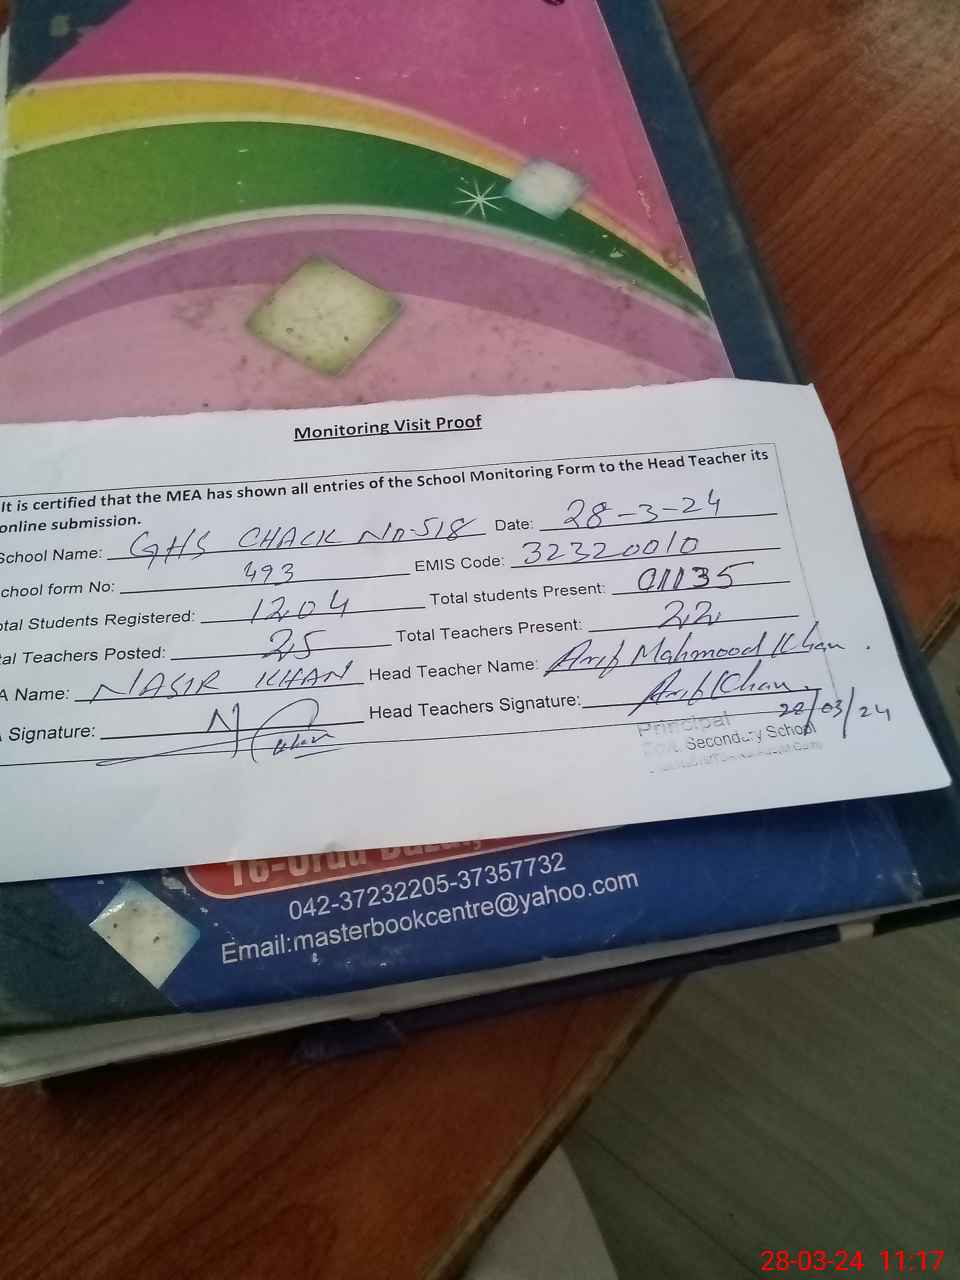 Monitoring Visit Proof
It is certified that the MEA has shown all entries of the School Monitoring Form to the Head Teacher its
online submission.
School Name: GHS CHACK No-518 Date: 28-3-24
chool form No: 493 EMIS Code: 32320010
otal Students Registered: 1204 Total students Present: 01135
tal Teachers Posted: 25 Total Teachers Present: 22
A Name: NASIR KHAN Head Teacher Name: Arif Mahmood Khan.
Signature: Khan Head Teachers Signature: Arif Khan.
28/03/24
Principal
Govt. Secondary School
16-Urdu Bazar,
042-37232205-37357732
Email:masterbookcentre@yahoo.com
28-03-24 11:17